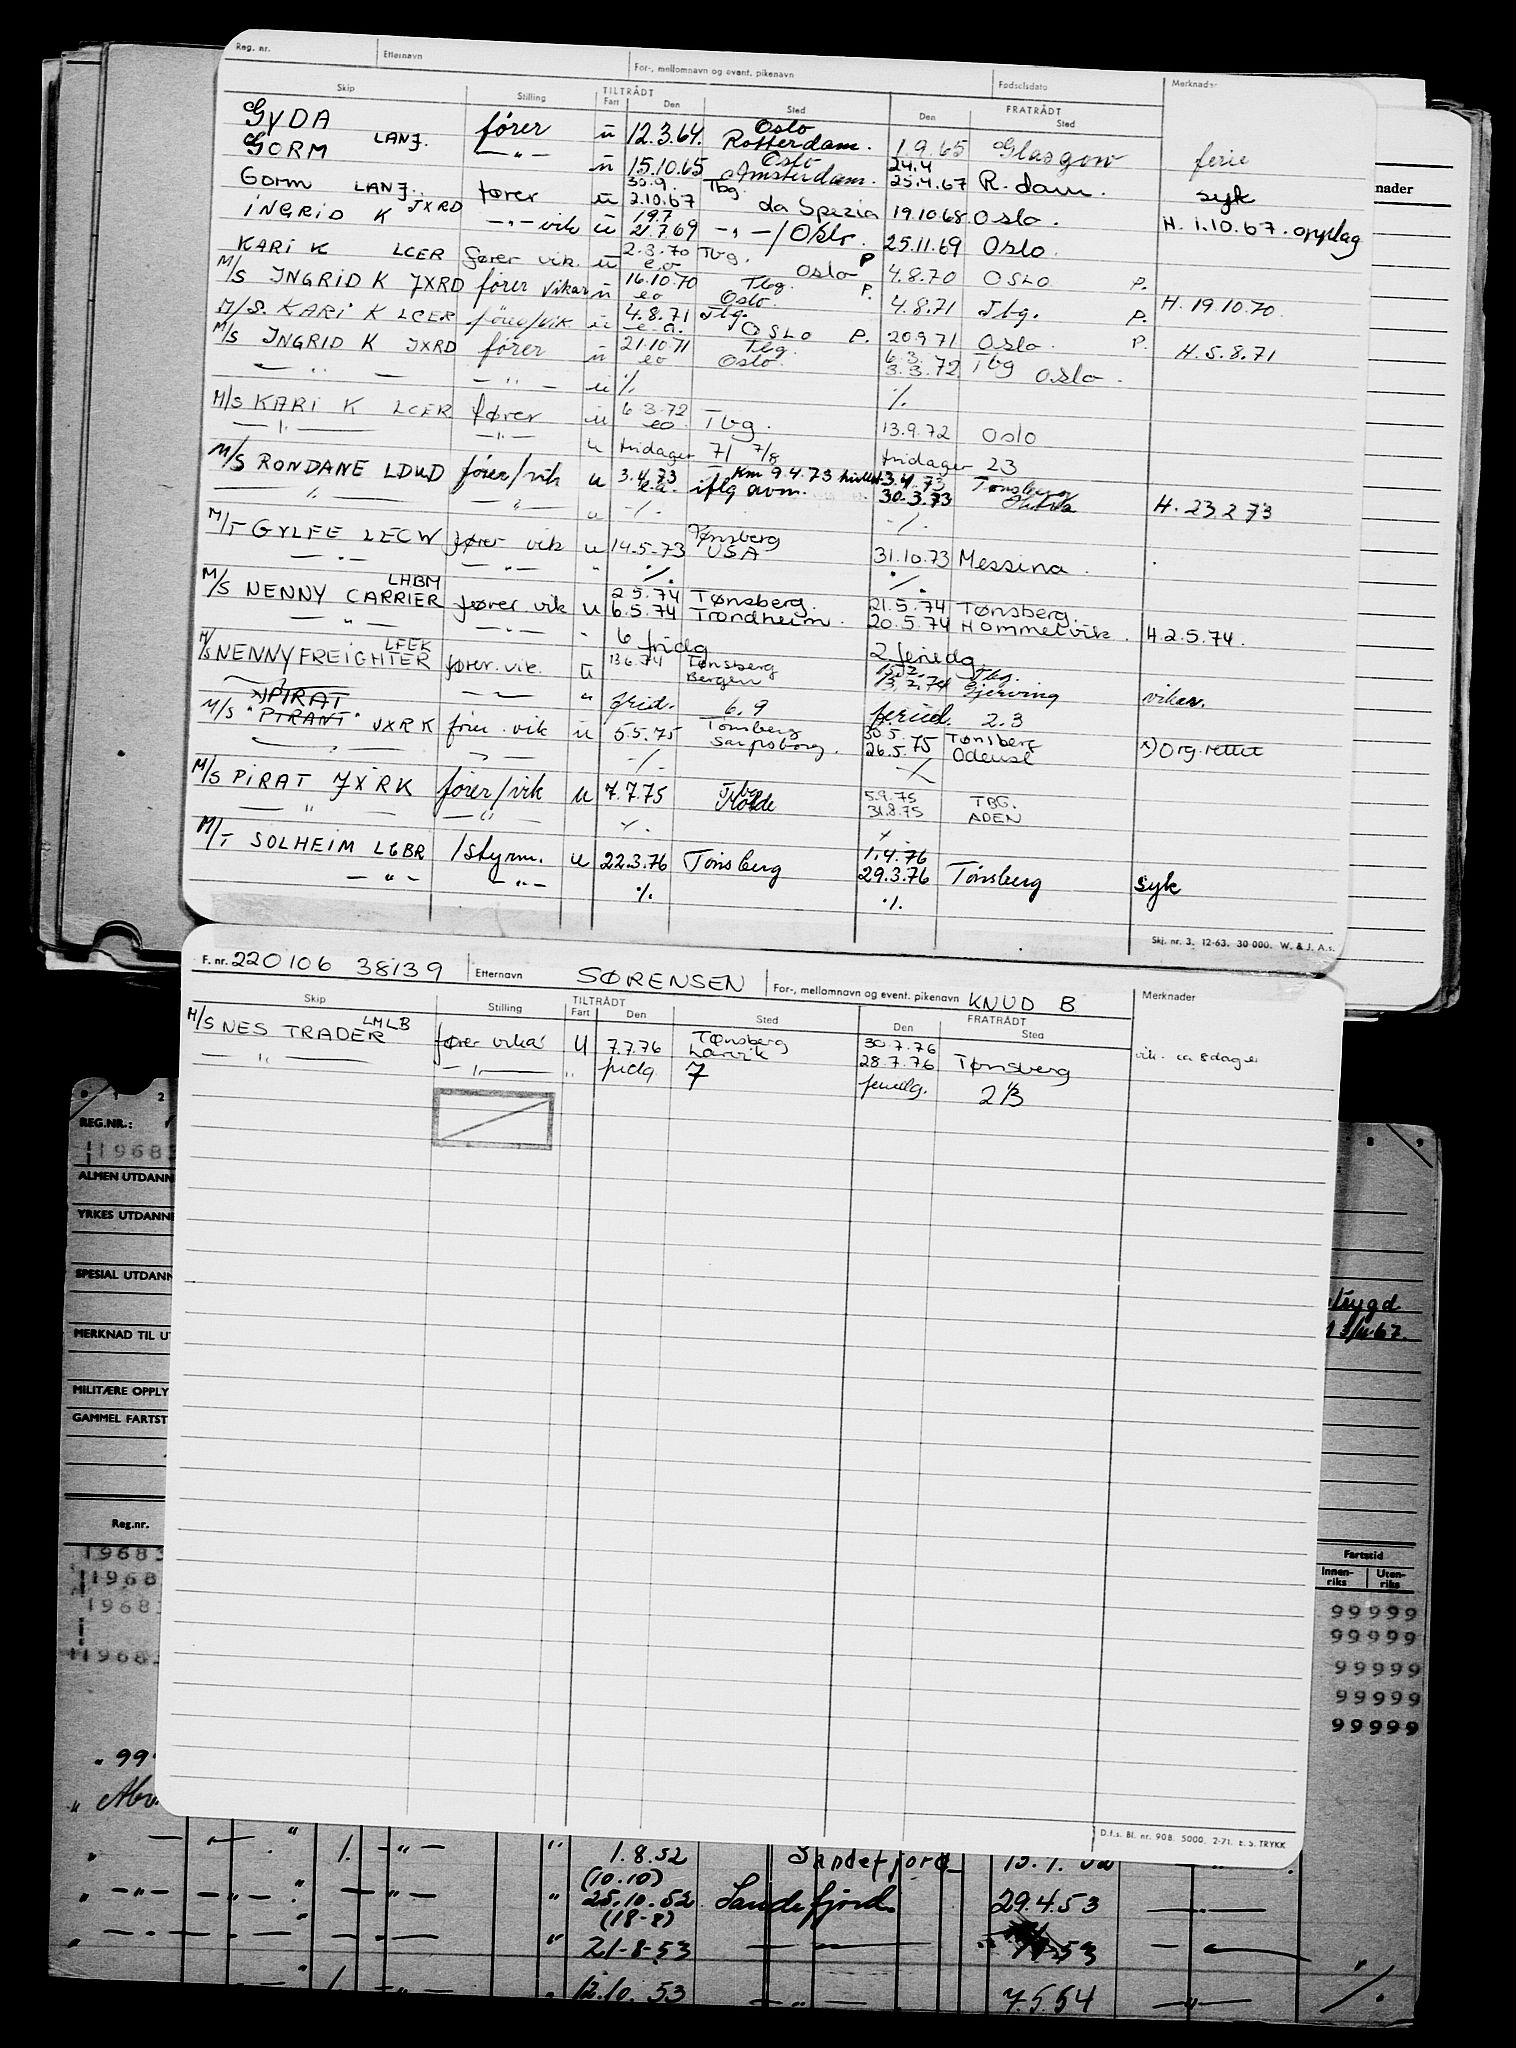 Reg. nr. Etternavn For-, mellomnavn og event. pikenavn Fødselsdato Merknader
Skip Stilling TILTRÅDT Fart Den Sted FRATRÅDT Den Sted
GYDA fører u 12.3.64. Oslo Rotterdam. 1.9.65 Glasgow ferie
GORM LANJ. —"— u 15.10.65 Oslo Amsterdam. 24.4 25.4.67 R.dam. syk
Gorm LANJ. fører u 30.9. 2.10.67 Tbg. da Spezia 19.10.68 Oslo. H. 1.10.67. opplag
INGRID K JXRD —"— vik u 19.7 21.7.69 —"—/Oslo. 25.11.69 Oslo.
KARI K LCER fører vik. u 2.3.70 e.o Tbg. Oslo P 4.8.70 OSLO P.
M/S INGRID K JXRD fører vikar u 16.10.70 eo Tbg. Oslo. P. 4.8.71 Tbg. P. H. 19.10.70.
M/S. KARI K LCER fører/vik u 4.8.71 e.o. Tbg. OSLO P. 20.9.71 Oslo. P. H. 5.8.71
M/S INGRID K JXRD fører u 21.10.71 eo Tbg. Oslo. 6.3. 3.3.72 Tbg Oslo.
— " — —"— u ·/. ·/.
M/S KARI K LCER fører u 6.3.72 eo Tbg. 13.9.72 Oslo
— " — —"— u fridager 71 7/8 fridager 23
M/S RONDANE LDUD fører/vik u 3.4.73 e.o. Km 9.4.73 iflg avm. 3.4.73 30.3.73 Tønsberg H. 23.2.73
— " — —"— u -/- -/-
M/T GYLFE LECW fører vik u 14.5.73 Tønsberg USA 31.10.73 Messina.
— " — —"— " ·/. ·/.
M/S NENNY CARRIER LHBM fører vik u 2.5.74 6.5.74 Tønsberg. Trondheim. 21.5.74 20.5.74 Tønsberg. Hommelvik. H. 2.5.74.
— " — —"— " 6 fridg 2 feriedg.
M/S NENNY FREIGHTER LFEK fører. vik. u 13.6.74 Tønsberg Bergen Tbg. Gjerving vikar.
— " — —"— " frid. 6.9 feried. 2.3
x) PIRAT
M/S "PIRANT" JXRK fører. vik u 5.5.75 Tønsberg Sarpsborg. 30.5. 26.5.75 Tønsberg Odense x) Org. rettet
— " — —"— -/- -/-
M/S PIRAT JXRK fører/vik u 7.7.75 Tbg Molde 5.9.75 31.8.75 TBG. ADEN
— " — —"— ·/. ·/.
M/T SOLHEIM LGBR 1styrm. u 22.3.76 Tønsberg 1.4.76 29.3.76 Tønsberg syk
— " — —"— ·/. ·/.
Skj. nr. 3. 12-63. 30 000. W. & J. A.s.
nader
F. nr. 220106 38139 Etternavn SØRENSEN For-, mellomnavn og event. pikenavn KNUD B Merknader
Skip Stilling TILTRÅDT Fart Den Sted FRATRÅDT Den Sted
M/S NES TRADER LMLB fører vikar U 7.7.76 Tønsberg Larvik 30.7.76 28.7.76 Tønsberg vik. ca 8 dager
— " — —"— " fridg 7 feriedg. 2 1/3
D.f.s. Bl. nr. 908. 5000. 2-71. E. S. TRYKK
1 2 8 9
REG.NR.:
19683
ALMEN UTDANN
YRKES UTDANNE
SPESIAL UTDANN
MERKNAD TIL U
MILITÆRE OPPLY
GAMMEL FARTST
Reg.nr. Fartstid
Innen-riks Uten-riks
19683 99999
1968 99999
1968 99999
19683 99999
99999
" 999
" — " — " 1. —"— " 1.8.52 Sandefjord
(10.10)
" —"— —"— " —"— " 25.10.52 Sandefjord 29.4.53 —"—
(18-8)
" —"— " —"— " 21-8-53 —"— 53 —"—
" 1. —"— " 12.10.53 —"— 7.5.54 —"— ·/.